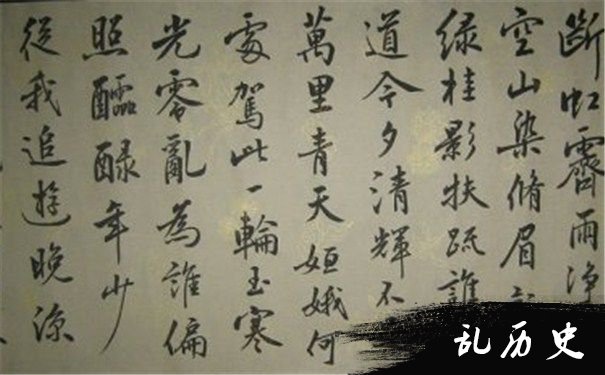 斷虹霽雨淨
空山染脩眉
緑桂影扶疏誰
道今夕清輝不
萬里青天姮娥何
處駕此一輪玉寒
光零亂為誰偏
照醽醁年少
從我追遊晚涼
乱历史